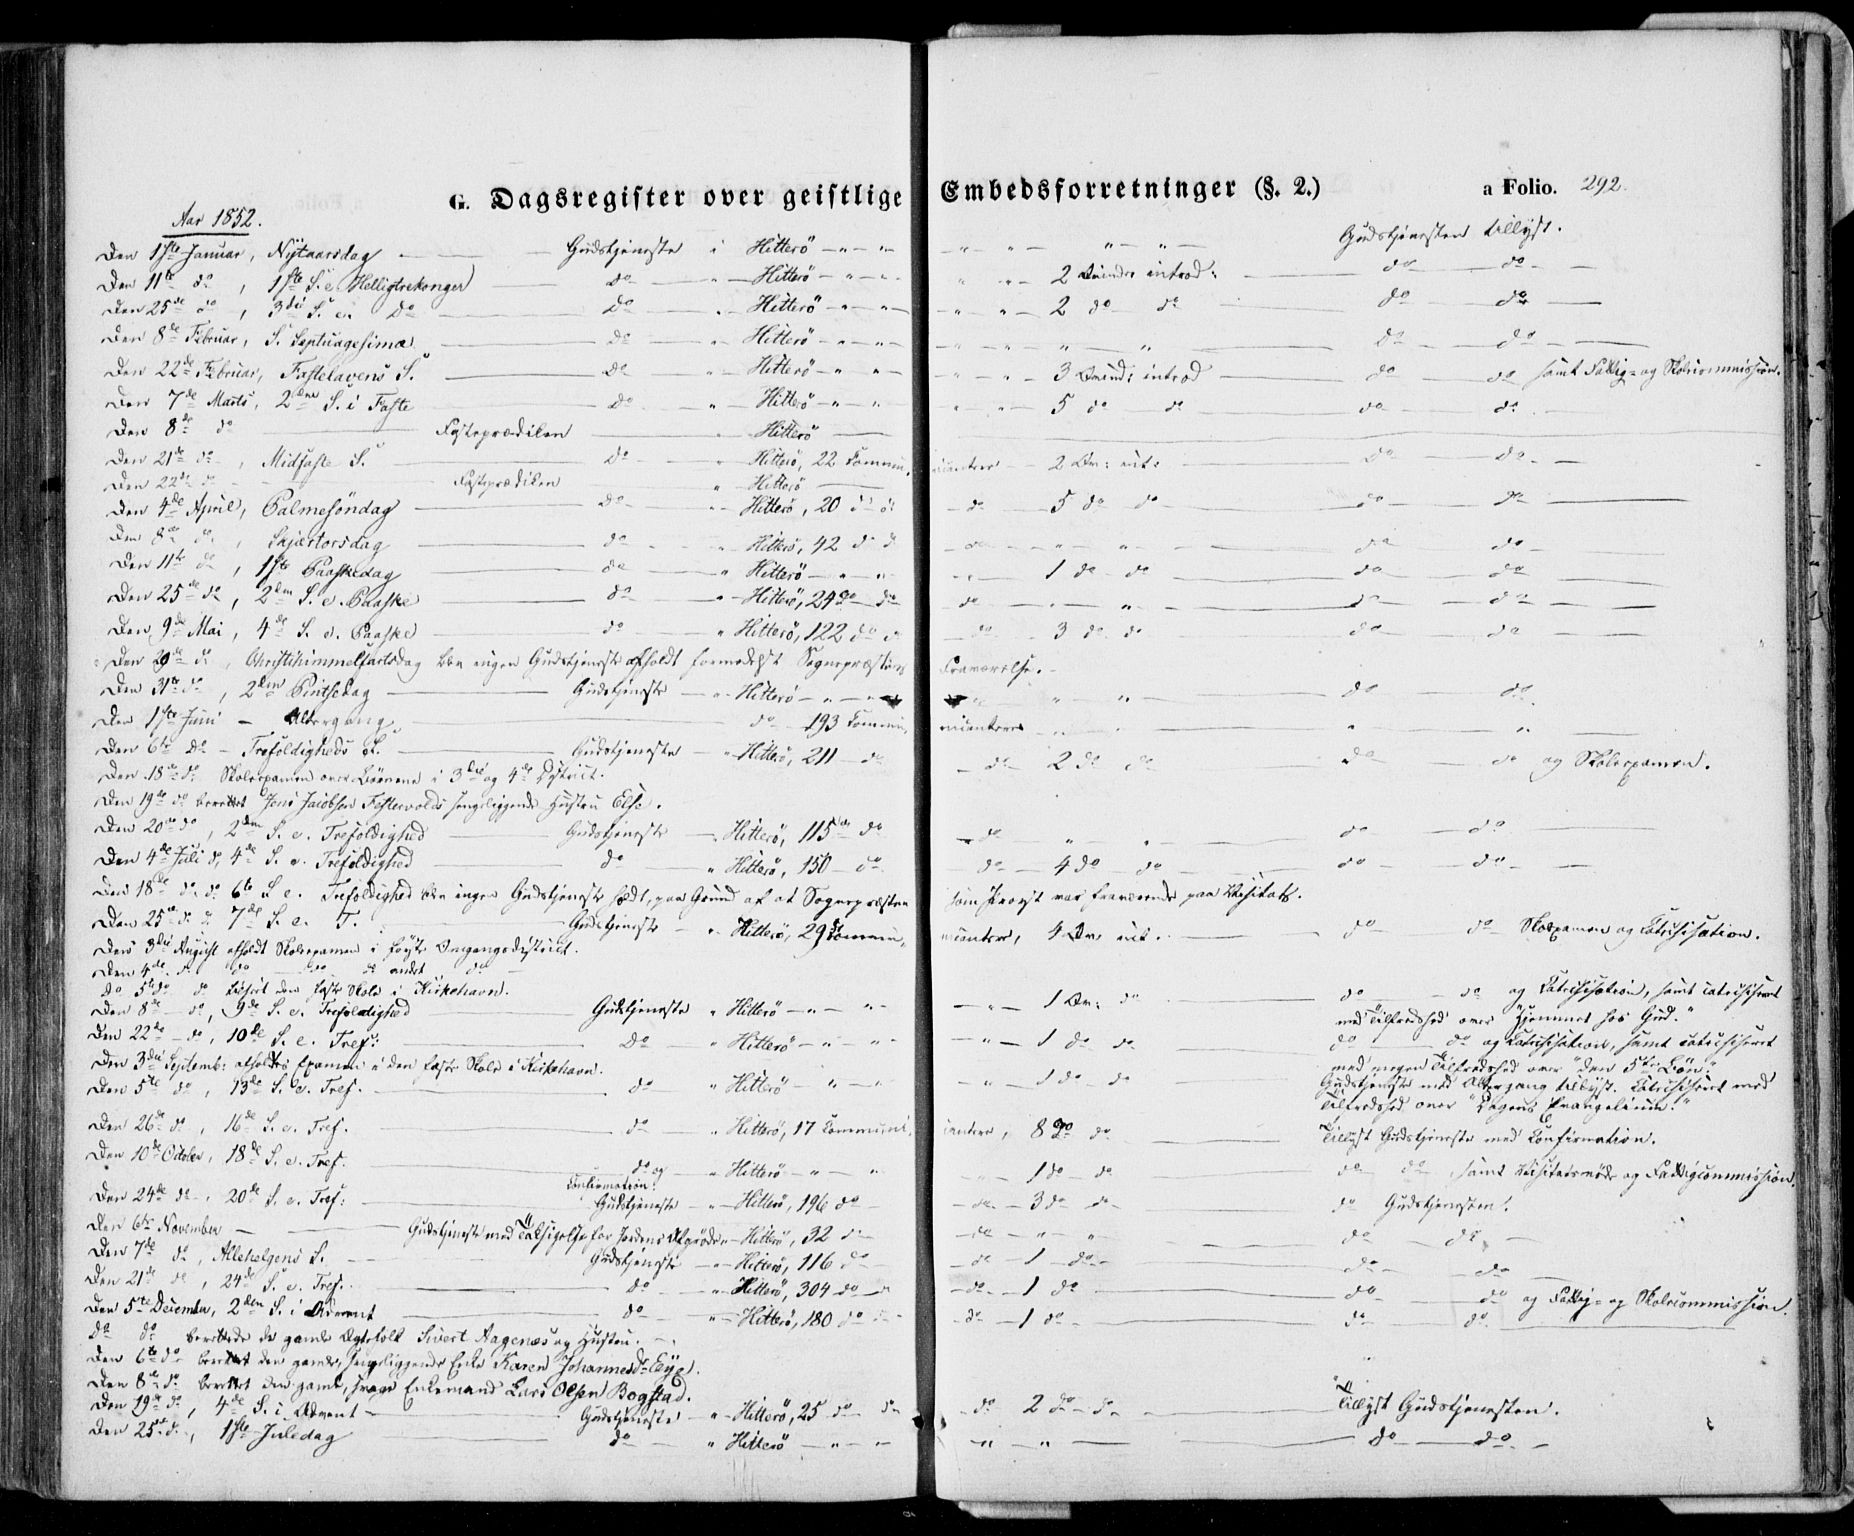 G. Dagsregister over geistlige Embedsforretninger (§. 2.) a Folio. 292.
Aar 1852.
Den 1ste Januar, Nytaarsdag — Gudstjeneste i Hitterö — " — " — " — " — Gudstjenesten tillyst.
Den 11te do, 1ste S. e. Helligtrekonger — do — " Hitterö — " — " — 2 Qvinder introd: — do — do —
Den 25de do, 3die S. e. do — do — " Hitterö — " — " — 2 do do — do — do —
Den 8de Februar, S. Septuagesima — do — " Hitterö — " — " — " " — do — do —
Den 22de Februar, Fastelavens S. — do — " Hitterö — " — " — 3 Qvind: introd — do — do samt Fattig- og Skolecommission.
Den 7de Marts, 2den S. i Faste — do — " Hitterö — " — " — 5 do do — do — do
Den 8de do — Fasteprædiken — " Hitterö —
Den 21de do, Midfaste S. — do — " Hitterö, 22 Communicantere — 2 Qv: int: — do — do —
Den 22de do — Fasteprædiken — " Hitterö —
Den 4de April, Palmesöndag — do — " Hitterö, 20 do do — do — 5 do do — do — do —
Den 8de do, Skjærtorsdag — do — " Hitterö, 42 do do — do — " — " — do — do —
Den 11te do, 1ste Paaskedag — do — " Hitterö — " — " — 1 do do — do — do —
Den 25de do, 2den S. e. Paaske — do — " Hitterö, 24 do do — do — " — " — do — do —
Den 9de Mai, 4de S. e. Paaske — do — " Hitterö, 122 do do — do — 3 do do — do — do —
Den 20de do, Christihimmelfartsdag blev ingen Gudstjeneste afholdt formedelst Sognepræstens Fraværelse.
Den 31te do, 2den Pintsedag — Gudstjeneste — " Hitterö — " — " — " " — do — do.
Den 1ste Juni — Altergang — do — 193 Communicantere " " — " — "
Den 6te do — Trefoldigheds S. — Gudstjeneste — " Hitterö, 211 — do — do — 2 do do — do — do og Skoleexamen.
Den 18de do Skoleexamen over Börnene i 3die og 4de District.
Den 19de do berettet Jens Jacobsen Festervolds sengeliggende Hustru Else.
Den 20de do, 2den S. e. Trefoldighed — Gudstjeneste — " Hitterö, 115 do — do — " — " — do — do —
Den 4de Juli do, 4de S. e. Trefoldighed — do — " Hitterö, 150 — do — do — 4 do do — do — do —
Den 18de do do 6te S. e. Trefoldighed blev ingen Gudstjeneste holdt, paa Grund af at Sognepræsten som Provst var fraværende paa Visitats.
Den 25de do, 7de S. e. T. — Gudstjeneste — " Hitterö, 29 Communicantere, 4 Qv. int. — do — do Skoleexamen og Catechisation.
Den 3die August afholdt Skoleexamen i förste Omgangsdistrict.
Den 4de do do do andet do
do 5te do do besögt den faste Skole i Kirkehavn.
Den 8de do, 9de S. e. Trefoldighed — Gudstjeneste " Hitterö — " — " — " — 1 Qv: do — do — do og Catechisation, samt catechiseret
med Tilfredshed over "Hjemmet hos Gud."
Den 22de — do, 10de S. e. Tref: — do — " Hitterö — " — " — " — 1 do do — do — do og Catechisation, samt catechiseret
med megen Tilfredshed over "den 5te Bön"
Den 3die Septemb: afholdtes Examen i den faste Skole i Kirkehavn.
Den 5te do, 13de S. e. Tref. — do " Hitterö " — " — " — 1 do do — Gudstjeneste med Altergang tillyst. Catechiseret med
Tilfredshed over "Dagens Evangelium."
Den 26de do, 16de S. e. Tref. — do " Hitterö, 17 Communicantere, 8 do do — Tillyst Gudstjeneste med Confirmation.
Den 10de October, 18de S. e. Tref. — do og Confirmation. " Hitterö — " — " — " — 1 do do — do do samt Visitatsmöde og Fattigcommission.
Den 24de do, 20de S. e. Tref: — Gudstjeneste — " Hitterö, 196 do — do — 3 do do — do Gudstjenesten.
Den 6te November — Gudstjeneste med Taksigelse for Jordens Afgröde " Hitterö, 32 do — do — " — " — do — do —
Den 7de do, Allehelgens S. — Gudstjeneste — " Hitterö, 116 do — do — 1 do — do — do —
Den 21de do, 24de S. e. Tref. — do — " Hitterö, 304 do do — do — 1 do — do — do og Fattig- og Skolecommission.
Den 5te December, 2den S. i Advent — do — " Hitterö, 180 do do — do — 1 do — do — do
do do berettede de gamle Ægtefolk Sivert Aagenæs og Hustru.
Den 6te do berettet den gamle, sengeliggende Enke Karen Johannesdr Eye.
Den 8de do berettet den gamle, svage Enkemand Lars Olsen Bogstad.
Den 19de do, 4de S. i Advent — Gudstjeneste " Hitterö, 25 do do — do 2 do do — Tillyst Gudstjenesten.
Den 25de do, 1ste Juledag — do — " Hitterö — " — " — " — " — do — do —